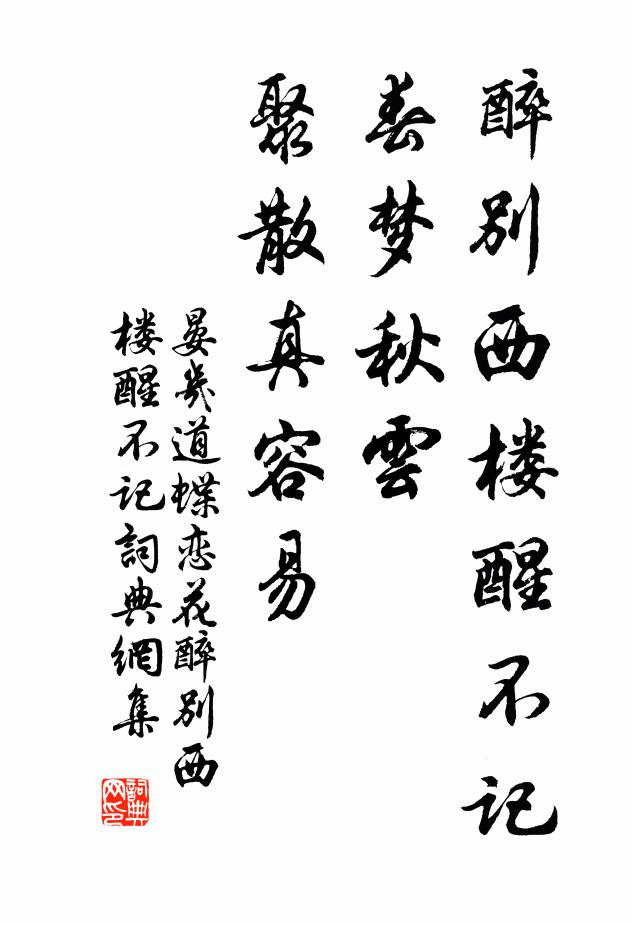 醉别西楼醒不记
春梦秋雲
聚散真容易
晏幾道蝶恋花醉别西
楼醒不记詞典網集
詞典
网印